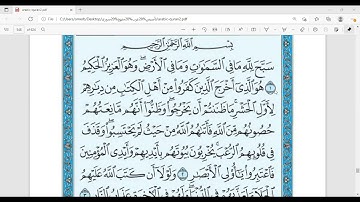 arabic-quran2.pdf
بِسْمِ اللَّهِ الرَّحْمَٰنِ الرَّحِيمِ
سَبَّحَ لِلَّهِ مَا فِي السَّمَٰوَٰتِ وَمَا فِي الْأَرْضِ وَهُوَ الْعَزِيزُ الْحَكِيمُ
١ هُوَ الَّذِي أَخْرَجَ الَّذِينَ كَفَرُوا مِنْ أَهْلِ الْكِتَٰبِ مِن دِيَٰرِهِمْ
لِأَوَّلِ الْحَشْرِ مَا ظَنَنتُمْ أَن يَخْرُجُوا وَظَنُّوا أَنَّهُم مَّانِعَتُهُمْ
حُصُونُهُم مِّنَ اللَّهِ فَأَتَىٰهُمُ اللَّهُ مِنْ حَيْثُ لَمْ يَحْتَسِبُوا وَقَذَفَ
فِي قُلُوبِهِمُ الرُّعْبَ يُخْرِبُونَ بُيُوتَهُم بِأَيْدِيهِمْ وَأَيْدِي الْمُؤْمِنِينَ
فَاعْتَبِرُوا يَٰأُولِي الْأَبْصَٰرِ ٢ وَلَوْلَا أَن كَتَبَ اللَّهُ عَلَيْهِمُ